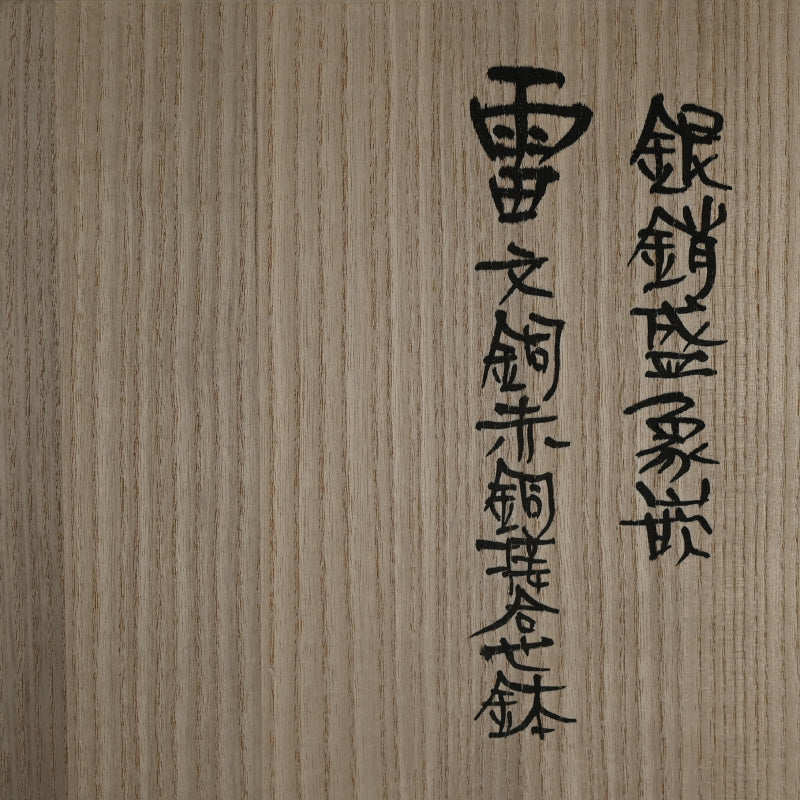 銀鎖盛象嵌
雷文銅赤銅接合せ鉢